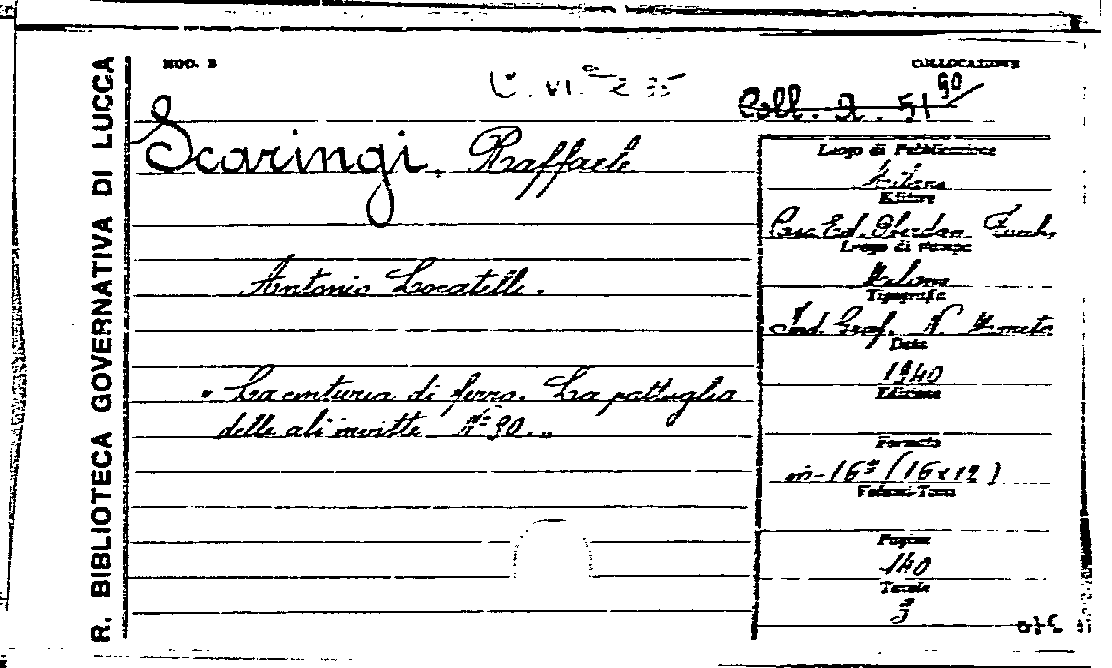 R. BIBLIOTECA GOVERNATIVA DI LUCCA
MOD. B
COLLOCAZIONE
Coll. A. 51 90/
Scaringi, Raffaele
Antonio Locatelli.
"La centuria di ferro. La pattuglia
delle ali invitte N° 90."
Luogo di Pubblicazione
Milano
Editore
Casa Ed. Oberdan Zucchi
Luogo di Stampa
Milano
Tipografia
Ind. Graf. N. Moneta
Data
1940
Edizione
Formato
in-16° (16x12)
Volumi-Tomi
Pagine
140
Tavole
3